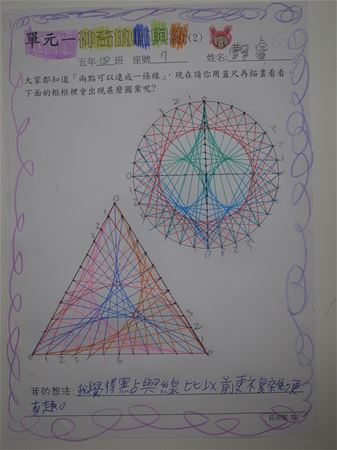 單元一神奇的點與線(2)
五年四班 座號 7 姓名:
大家都知道「兩點可以連成一條線」,現在請你用直尺再描畫看看,
下面的框框裡會出現甚麼圖案呢?
我的想法:我覺得點與線比以前更複雜,更
有趣。